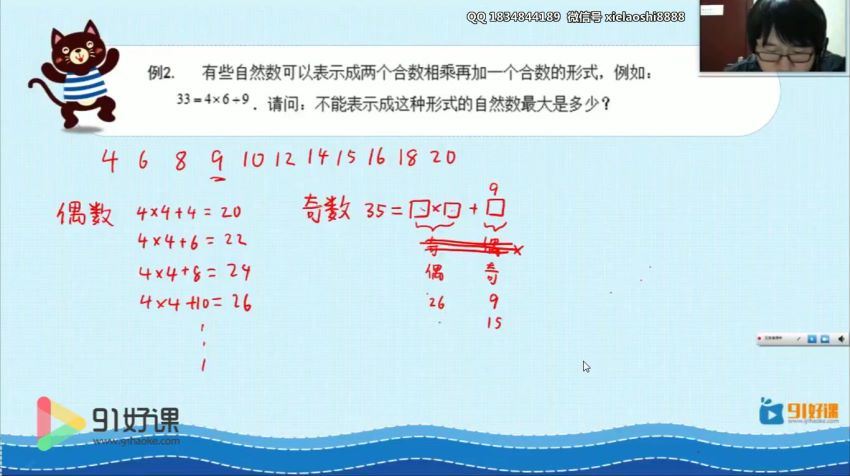 QQ 1834844189 微信号 xielaoshi8888
例2. 有些自然数可以表示成两个合数相乘再加一个合数的形式，例如：
33=4×6+9．请问：不能表示成这种形式的自然数最大是多少？
4 6 8 9 10 12 14 15 16 18 20
偶数 4×4+4=20
4×4+6=22
4×4+8=24
4×4+10=26
9
奇数 35=□×□+□
偶 奇
26 9
15
91好课
www.91haoke.com
91好课
www.91haoke.com